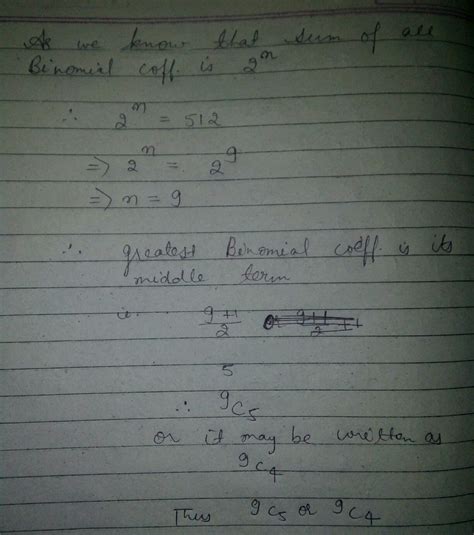 As we know that sum of all
Binomial coff. is 2^n
∴ 2^n = 512
=> 2^n = 2^9
=> n = 9
∴ greatest Binomial coeff. is its
middle term
i.e. (9+1)/2
5
∴ 9C5
or it may be written as
9C4
Thus 9C5 or 9C4